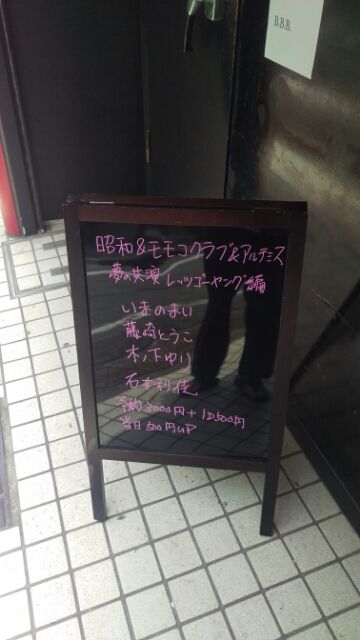 B.B.B.
昭和&モモコクラブ&アルテミス
夢の共演 レッツゴーヤング編
いまのまい
藤崎とうこ
木ノ下ゆり
石本利佳
予約3000円+1D500円
当日500円UP